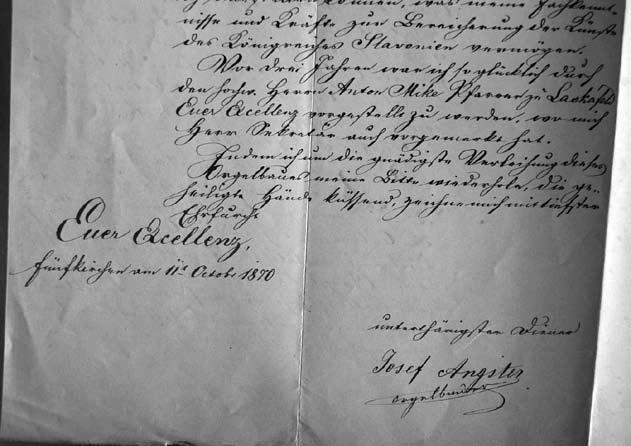 können, was meine Fachkennt-
nisse und Kräfte zur Bereicherung der Künste
des Königreiches Slavonien vermögen.
Vor drei Jahren war ich so glücklich durch
den hochw. Herrn Anton Mike Pfarrer zu
Euer Excellenz vorgestellt zu werden, wo mich
Herr Sekretär auch vorgemerkt hat.
Indem ich um die gnädigste Verleihung dieses
Orgelbaues meine Bitte wiederhole, die ge-
heiligte Hände küssend, zeichne mich mit tiefster
Ehrfurcht
Euer Excellenz,
Fünfkirchen am 11t October 1890
unterthänigster Diener
Josef Angster
Orgelbauer